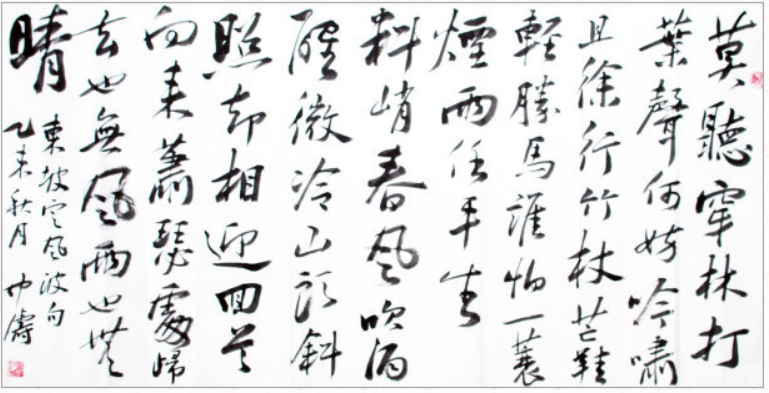 莫聽穿林打
葉聲何妨吟嘯
且徐行竹杖芒鞋
輕勝馬誰怕一蓑
煙雨任平生
料峭春風吹酒
醒微冷山頭斜
照却相迎回首
向来蕭瑟處歸
去也無風雨也無
晴
東坡定風波句
乙未秋月